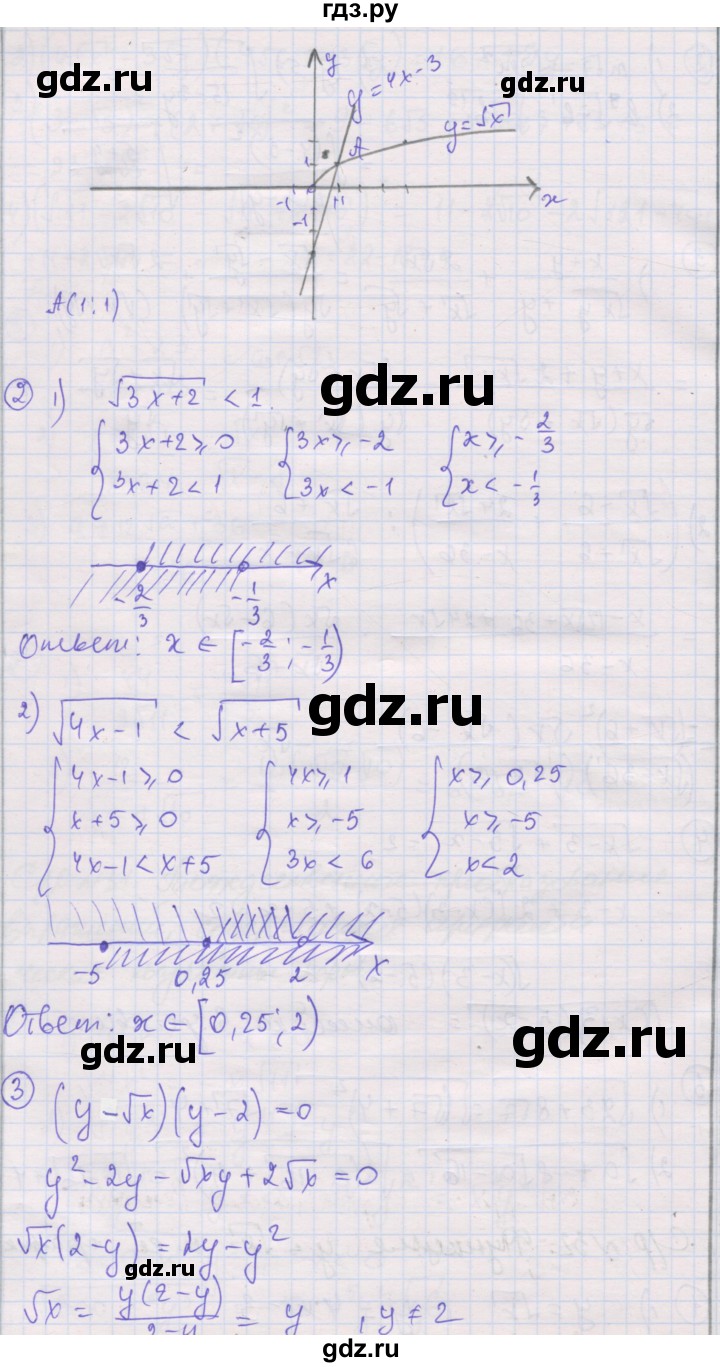 гдз.ру
gdz.ru
gdz.ru
y
y = 4x-3
y = √x
A
1
-1
1
-1
x
A(1;1)
② 1) √(3x+2) < 1.
gdz.ru
{ 3x+2 ⩾ 0 { 3x ⩾ -2 { x ⩾ -2/3
3x+2 < 1 3x < -1 x < -1/3
-2/3 -1/3 x
Ответ: x ∈ [-2/3; -1/3)
2) √(4x-1) < √(x+5)
gdz.ru
{ 4x-1 ⩾ 0 { 4x ⩾ 1 { x ⩾ 0,25
x+5 ⩾ 0 x ⩾ -5 x ⩾ -5
4x-1 < x+5 3x < 6 x < 2
-5 0,25 2 x
Ответ: x ∈ [0,25; 2)
gdz.ru
gdz.ru
③ (y-√x)(y-2) = 0
y² - 2y - √x y + 2√x = 0
√x(2-y) = 2y-y²
gdz.ru
√x = y(2-y)/2-y = y , y ≠ 2
gdz.ru